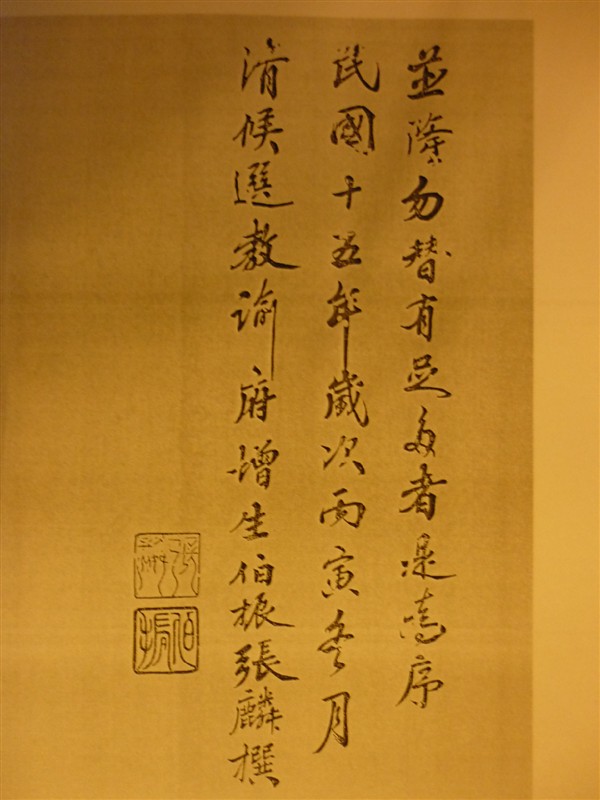 並隆勿替有足多者是為序
民國十五年歲次丙寅冬月
清候選教諭府增生伯振張麟撰
張麟
伯振